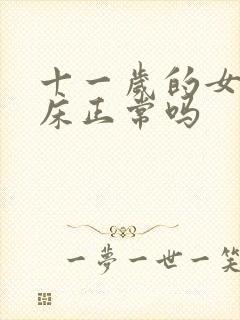 十一歲的女
床正常吗
一夢一世一笑